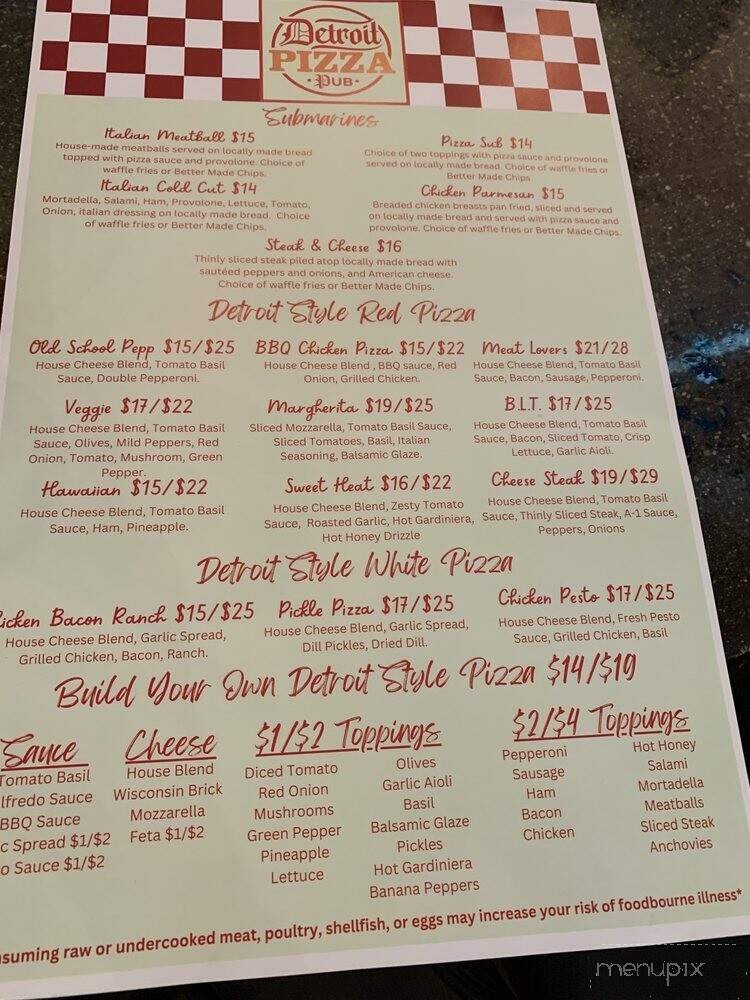 Detroit
PIZZA
·PUB·
Submarines
Italian Meatball $15
House-made meatballs served on locally made bread
topped with pizza sauce and provolone. Choice of
waffle fries or Better Made Chips.
Pizza Sub $14
Choice of two toppings with pizza sauce and provolone
served on locally made bread. Choice of waffle fries or
Better Made Chips.
Italian Cold Cut $14
Mortadella, Salami, Ham, Provolone, Lettuce, Tomato,
Onion, italian dressing on locally made bread. Choice
of waffle fries or Better Made Chips.
Chicken Parmesan $15
Breaded chicken breasts pan fried, sliced and served
on locally made bread and served with pizza sauce and
provolone. Choice of waffle fries or Better Made Chips.
Steak & Cheese $16
Thinly sliced steak piled atop locally made bread with
sautéed peppers and onions, and American cheese.
Choice of waffle fries or Better Made Chips.
Detroit Style Red Pizza
Old School Pepp $15/$25
House Cheese Blend, Tomato Basil
Sauce, Double Pepperoni.
BBQ Chicken Pizza $15/$22
House Cheese Blend , BBQ sauce, Red
Onion, Grilled Chicken.
Meat Lovers $21/28
House Cheese Blend, Tomato Basil
Sauce, Bacon, Sausage, Pepperoni.
Veggie $17/$22
House Cheese Blend, Tomato Basil
Sauce, Olives, Mild Peppers, Red
Onion, Tomato, Mushroom, Green
Pepper.
Margherita $19/$25
Sliced Mozzarella, Tomato Basil Sauce,
Sliced Tomatoes, Basil, Italian
Seasoning, Balsamic Glaze.
B.L.T. $17/$25
House Cheese Blend, Tomato Basil
Sauce, Bacon, Sliced Tomato, Crisp
Lettuce, Garlic Aioli.
Hawaiian $15/$22
House Cheese Blend, Tomato Basil
Sauce, Ham, Pineapple.
Sweet Heat $16/$22
House Cheese Blend, Zesty Tomato
Sauce, Roasted Garlic, Hot Gardiniera,
Hot Honey Drizzle
Cheese Steak $19/$29
House Cheese Blend, Tomato Basil
Sauce, Thinly Sliced Steak, A-1 Sauce,
Peppers, Onions
Detroit Style White Pizza
icken Bacon Ranch $15/$25
House Cheese Blend, Garlic Spread,
Grilled Chicken, Bacon, Ranch.
Pickle Pizza $17/$25
House Cheese Blend, Garlic Spread,
Dill Pickles, Dried Dill.
Chicken Pesto $17/$25
House Cheese Blend, Fresh Pesto
Sauce, Grilled Chicken, Basil
Build Your Own Detroit Style Pizza $14/$19
Sauce
Tomato Basil
lfredo Sauce
BBQ Sauce
c Spread $1/$2
o Sauce $1/$2
Cheese
House Blend
Wisconsin Brick
Mozzarella
Feta $1/$2
$1/$2 Toppings
Diced Tomato
Red Onion
Mushrooms
Green Pepper
Pineapple
Lettuce
Olives
Garlic Aioli
Basil
Balsamic Glaze
Pickles
Hot Gardiniera
Banana Peppers
$2/$4 Toppings
Pepperoni
Sausage
Ham
Bacon
Chicken
Hot Honey
Salami
Mortadella
Meatballs
Sliced Steak
Anchovies
suming raw or undercooked meat, poultry, shellfish, or eggs may increase your risk of foodbourne illness*
menupix